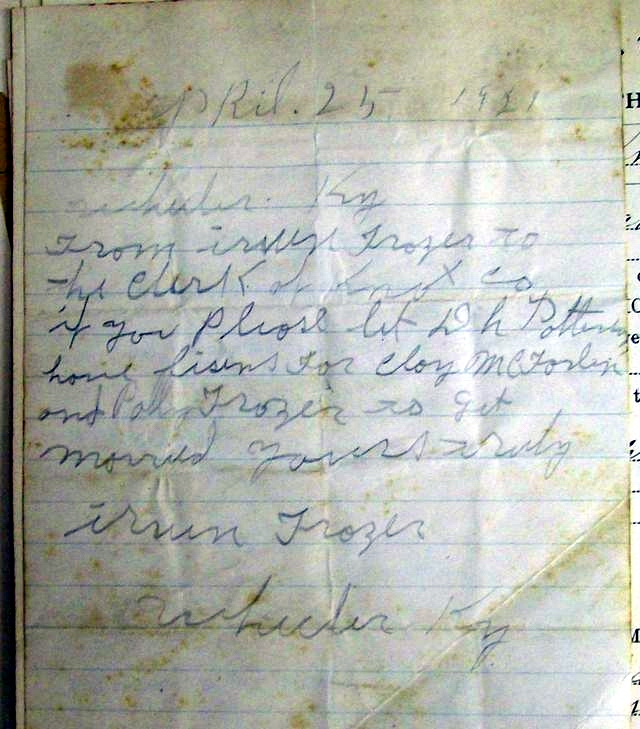 April. 25 1921
Wheeler. Ky
From irven Frozer to
the Clerk of Knox Co,
if you pleose let D h
hove lisens For Cloy McForlin
and Polly Frozer to get
morried yours truly
irven Frozer
Wheeler Ky